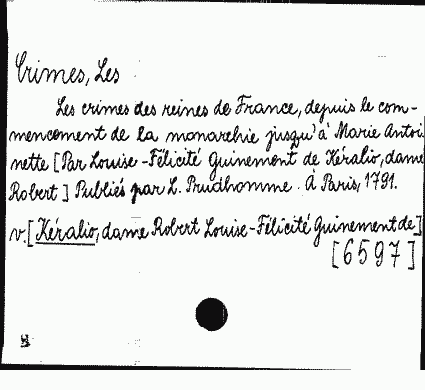 Crimes, Les
Les crimes des reines de France, depuis le com-
mencement de la monarchie jusqu'à Marie Antoi
nette [Par Louise-Félicité Guinement de Kéralio, dame
Robert] Publiés par L. Prudhomme. À Paris, 1791.
v. [Kéralio, dame Robert Louise-Félicité Guinement de]
[6597]